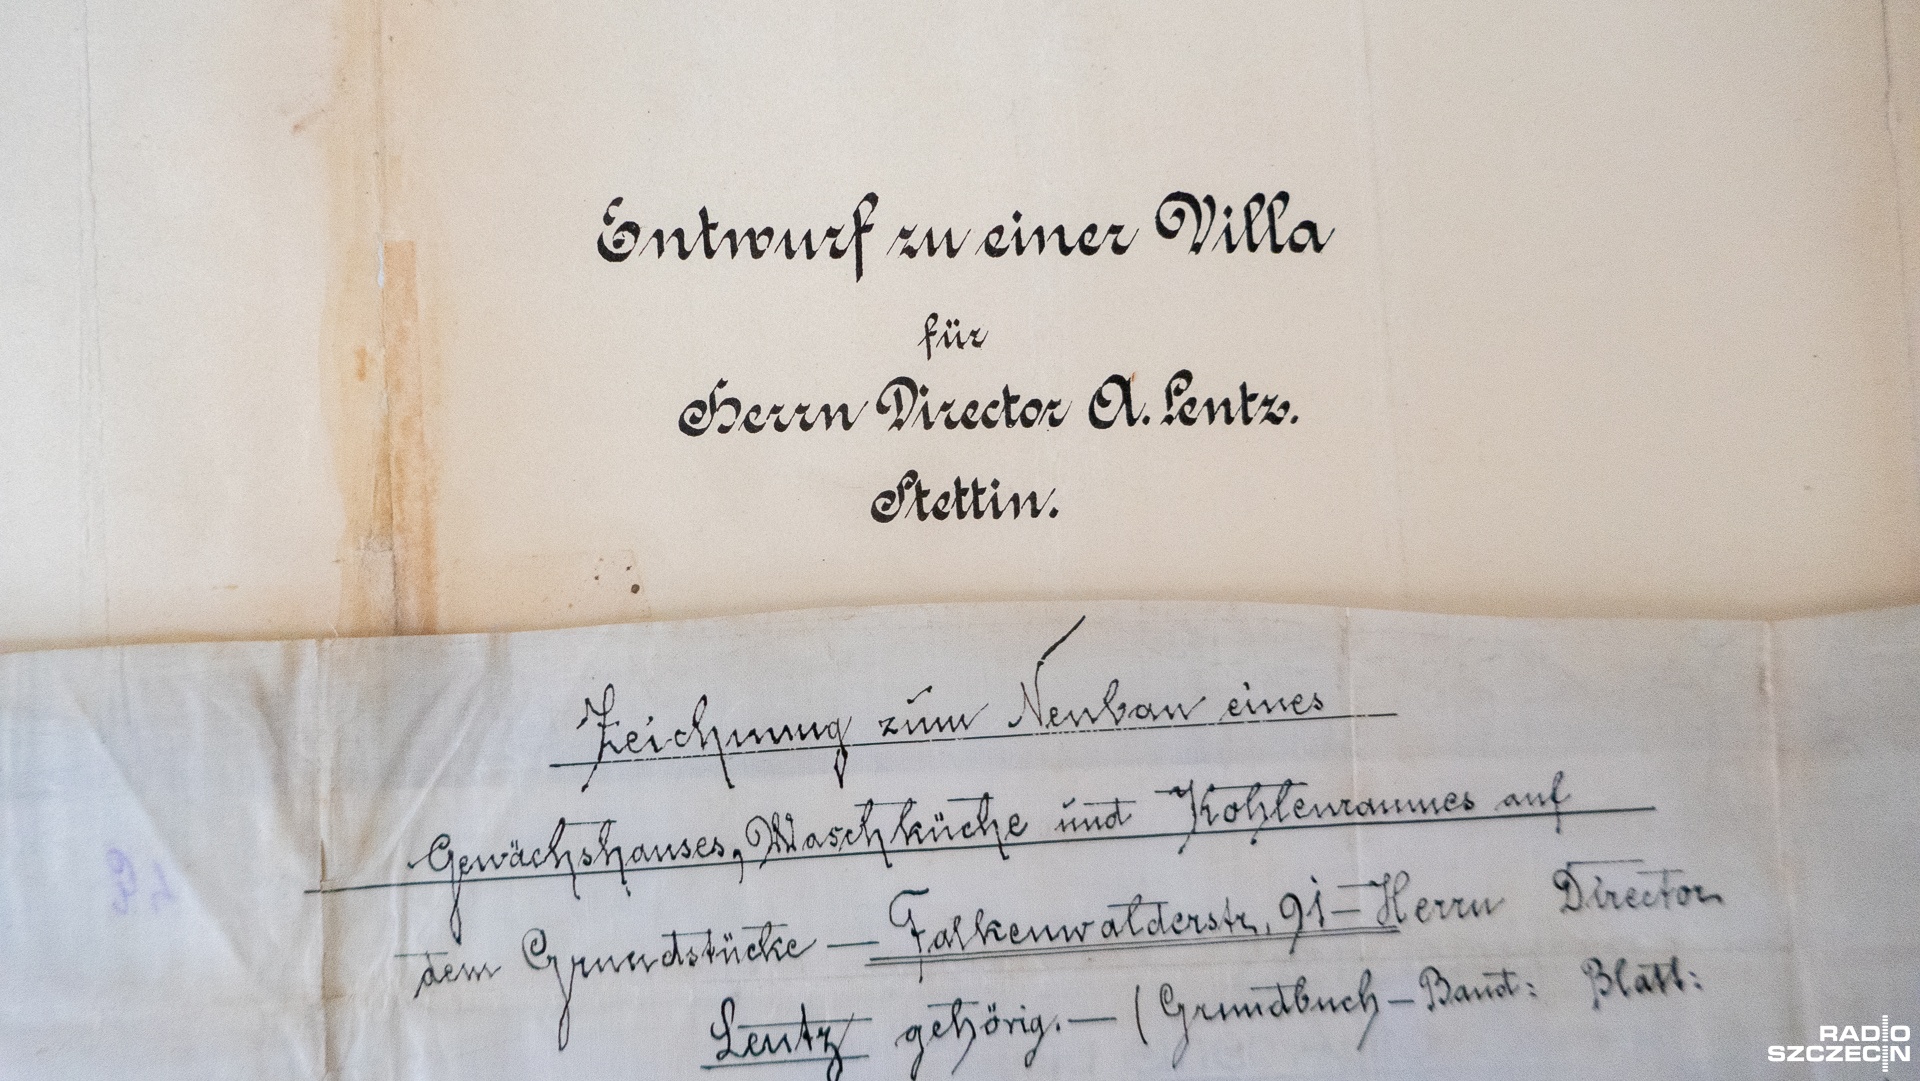 Entwurf zu einer Villa
für
Herrn Director A. Lentz.
Stettin.
Zeichnung zum Neubau eines
Gewächshauses, Waschküche und Kohlenraumes auf
dem Grundstücke — Falkenwalderstr. 91 — Herrn Director
Lentz gehörig. — (Grundbuch — Band: Blatt:
RADIO
SZCZECIN